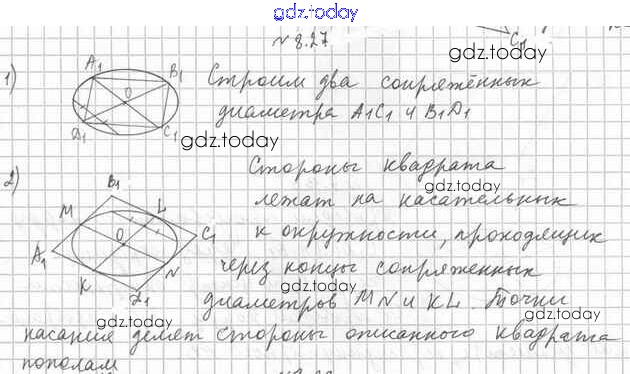 gdz.today
№ 8.27
C₁
gdz.today
1)
A₁
B₁
O
D₁
C₁
Строим два сопряжённых
диаметра A₁C₁ и B₁D₁
gdz.today
2)
B₁
M
L
O
A₁
C₁
K
N
D₁
Стороны квадрата
gdz.today
лежат на касательных
к окружности, проходящих
через концы сопряженных
gdz.today
диаметров MN и KL. Точки
gdz.today
gdz.today
касания делят стороны описанного квадрата
пополам